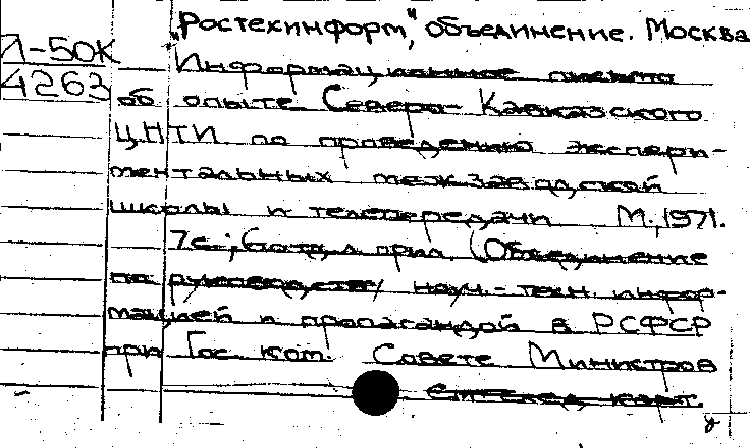 "Ростехинформ", объединение. Москва
Л-50К
Информационное письмо
4263
об опыте Северо-Кавказского
ЦНТИ по проведению экспери-
ментальных межзаводской
школы и телепередачи М., 1971.
7с.; 6 отд. л прил (Объединение
по руководству науч.-техн. инфор-
мацией и пропагандой в РСФСР
при Гос ком. Совете Министров